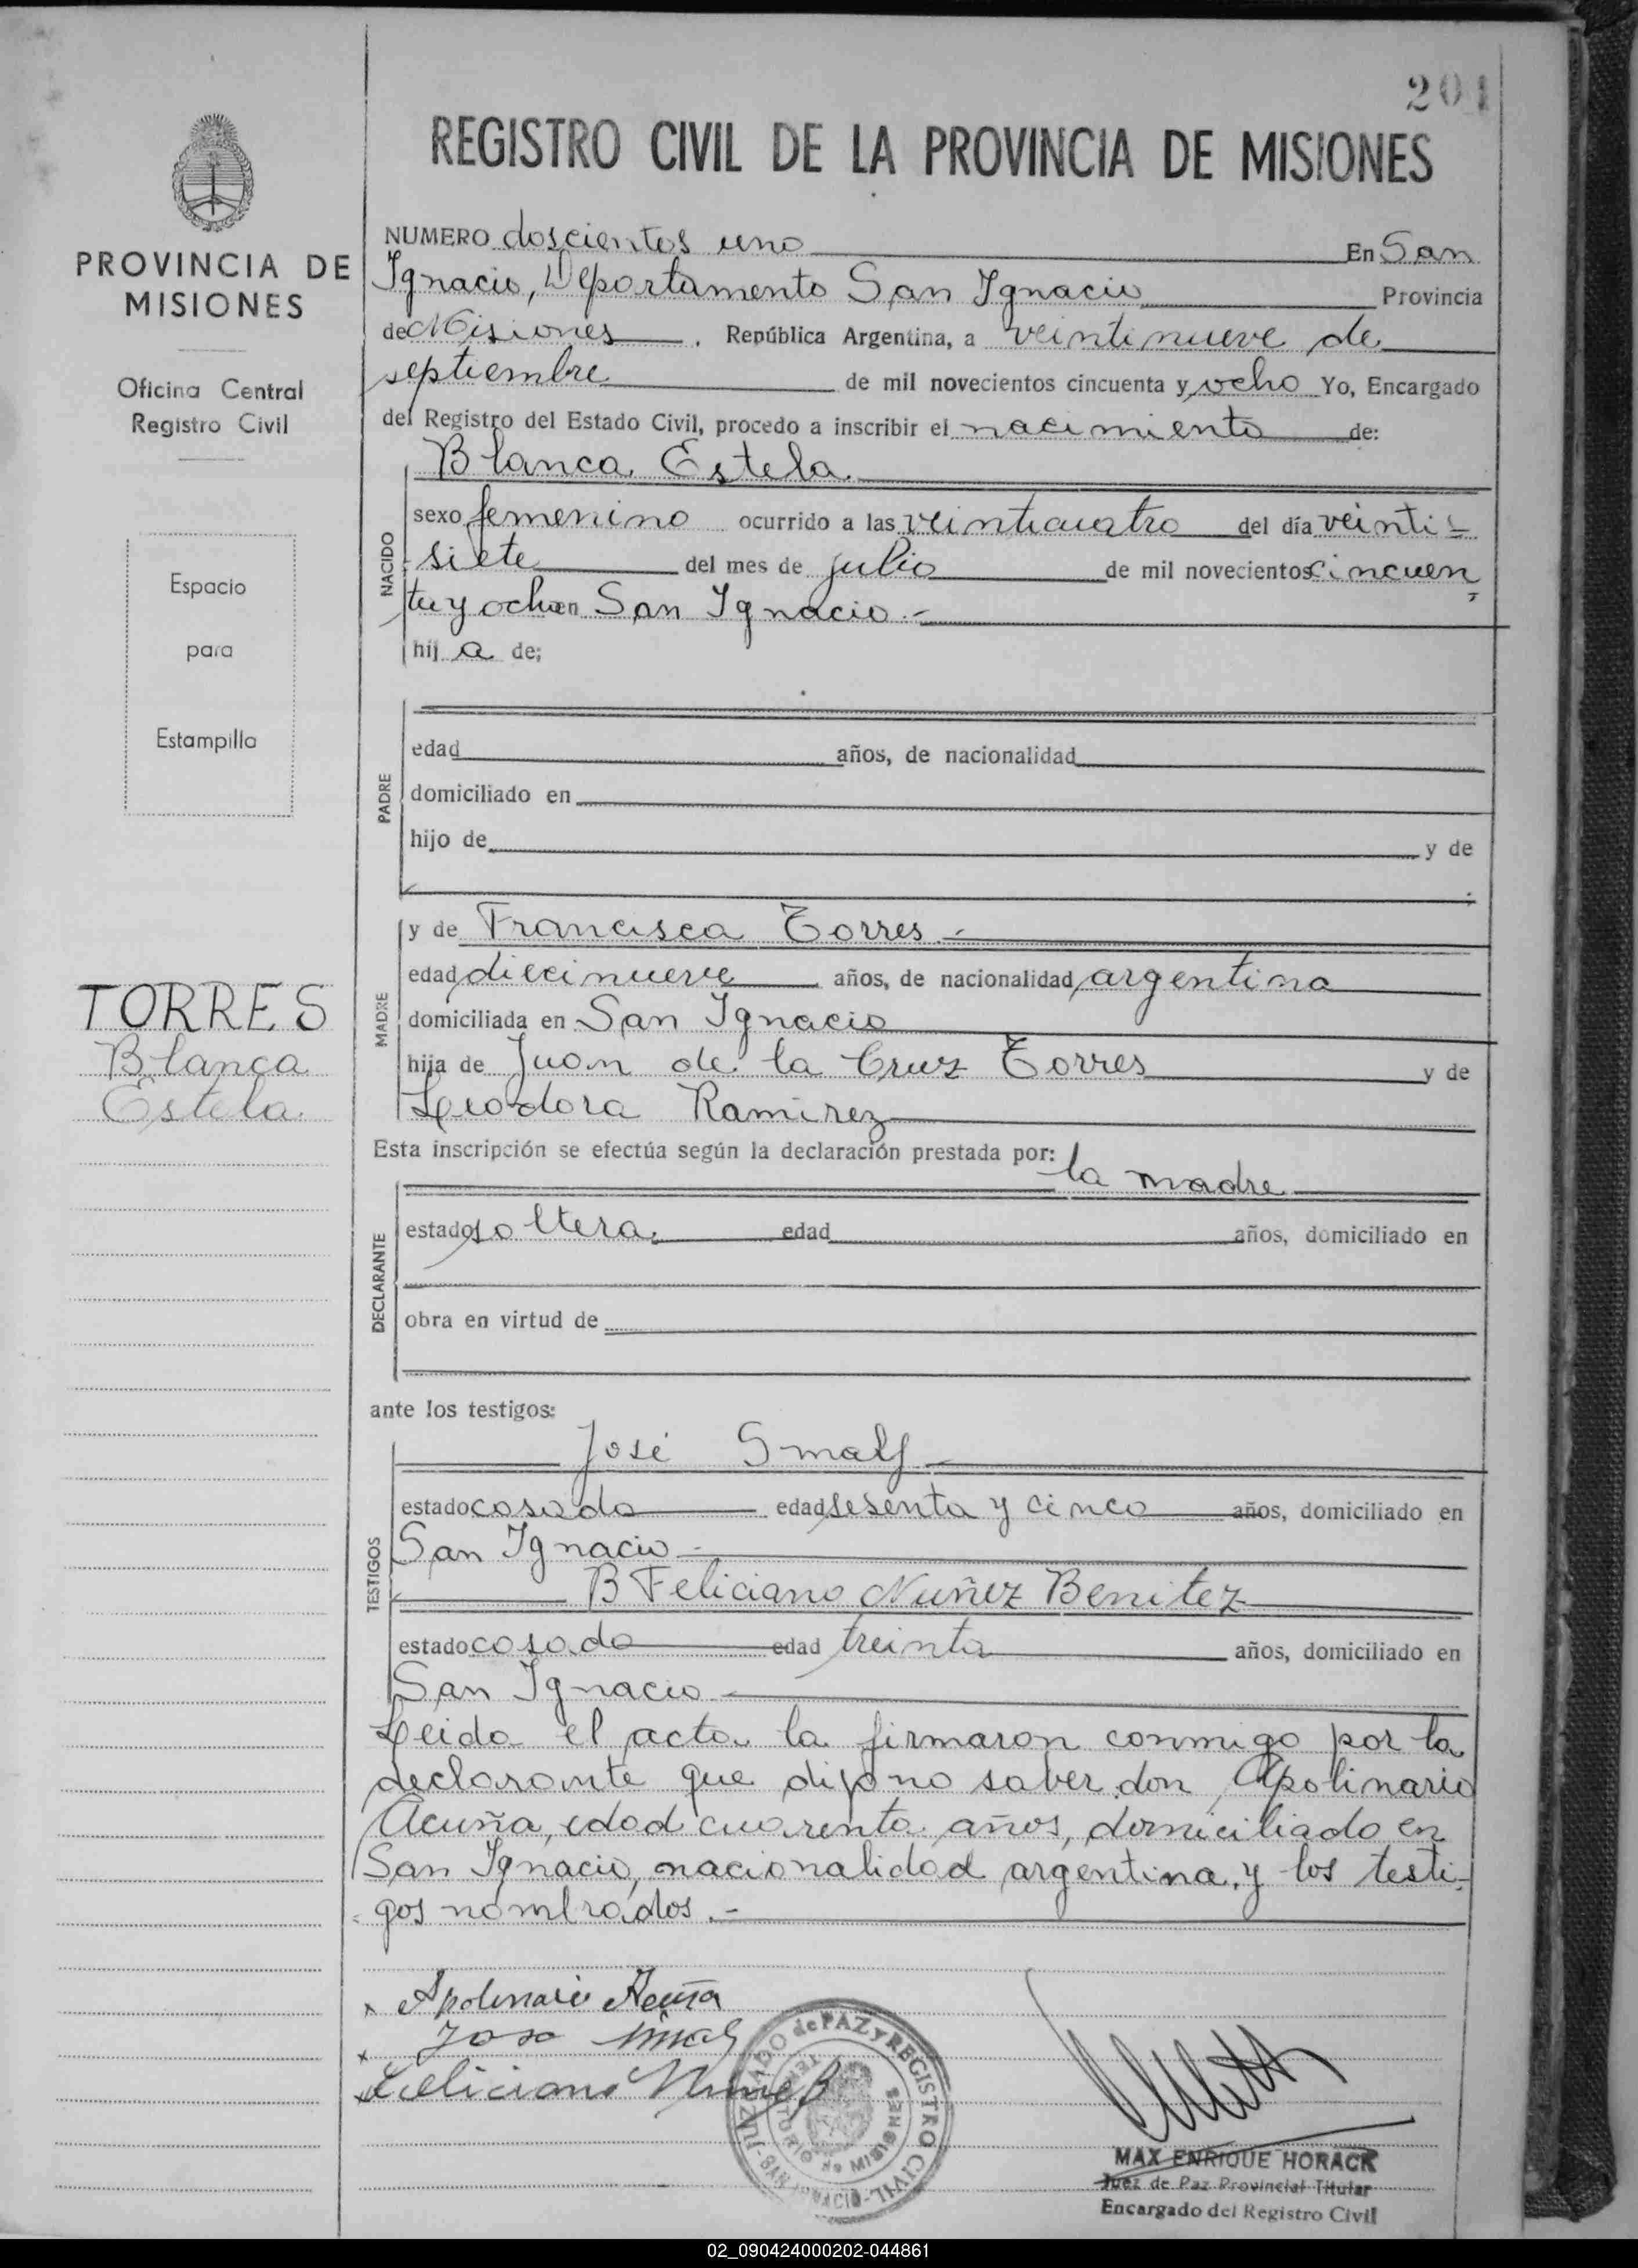 201
REGISTRO CIVIL DE LA PROVINCIA DE MISIONES
PROVINCIA DE
MISIONES
Oficina Central
Registro Civil
Espacio
para
Estampilla
TORRES
Blanca
Estela
NUMERO doscientos uno En San
Ignacio, Departamento San Ignacio Provincia
de Misiones, República Argentina, a veintinueve de
septiembre de mil novecientos cincuenta y ocho Yo, Encargado
del Registro del Estado Civil, procedo a inscribir el nacimiento de:
Blanca Estela
NACIDO
sexo femenino ocurrido a las veinticuatro del día veinti-
siete del mes de julio de mil novecientos cincuen
ta y ocho en San Ignacio.-
hija de;
PADRE
edad años, de nacionalidad
domiciliado en
hijo de y de
MADRE
y de Francisca Torres.-
edad diecinueve años, de nacionalidad argentina
domiciliada en San Ignacio
hija de Juan de la Cruz Torres y de
Leodora Ramirez
Esta inscripción se efectúa según la declaración prestada por:
la madre
DECLARANTE
estado soltera. edad años, domiciliado en
obra en virtud de
ante los testigos:
TESTIGOS
José Smalf
estado casado edad sesenta y cinco años, domiciliado en
San Ignacio.-
B Feliciano Nuñez Benitez
estado casado edad treinta años, domiciliado en
San Ignacio.-
Leida el acta la firmaron conmigo por la
declarante que dijo no saber don Apolinario
Acuña, edad cuarenta años, domiciliado en
San Ignacio, nacionalidad argentina, y los testi-
gos nombrados.-
x Apolinario Acuña
x Jose
x Feliciano Nuñez B
JUZGADO de PAZ y REGISTRO CIVIL - SAN IGNACIO -
TERRITORIO de MISIONES
MAX ENRIQUE HORACK
Juez de Paz Provincial Titular
Encargado del Registro Civil
02_090424000202-044861